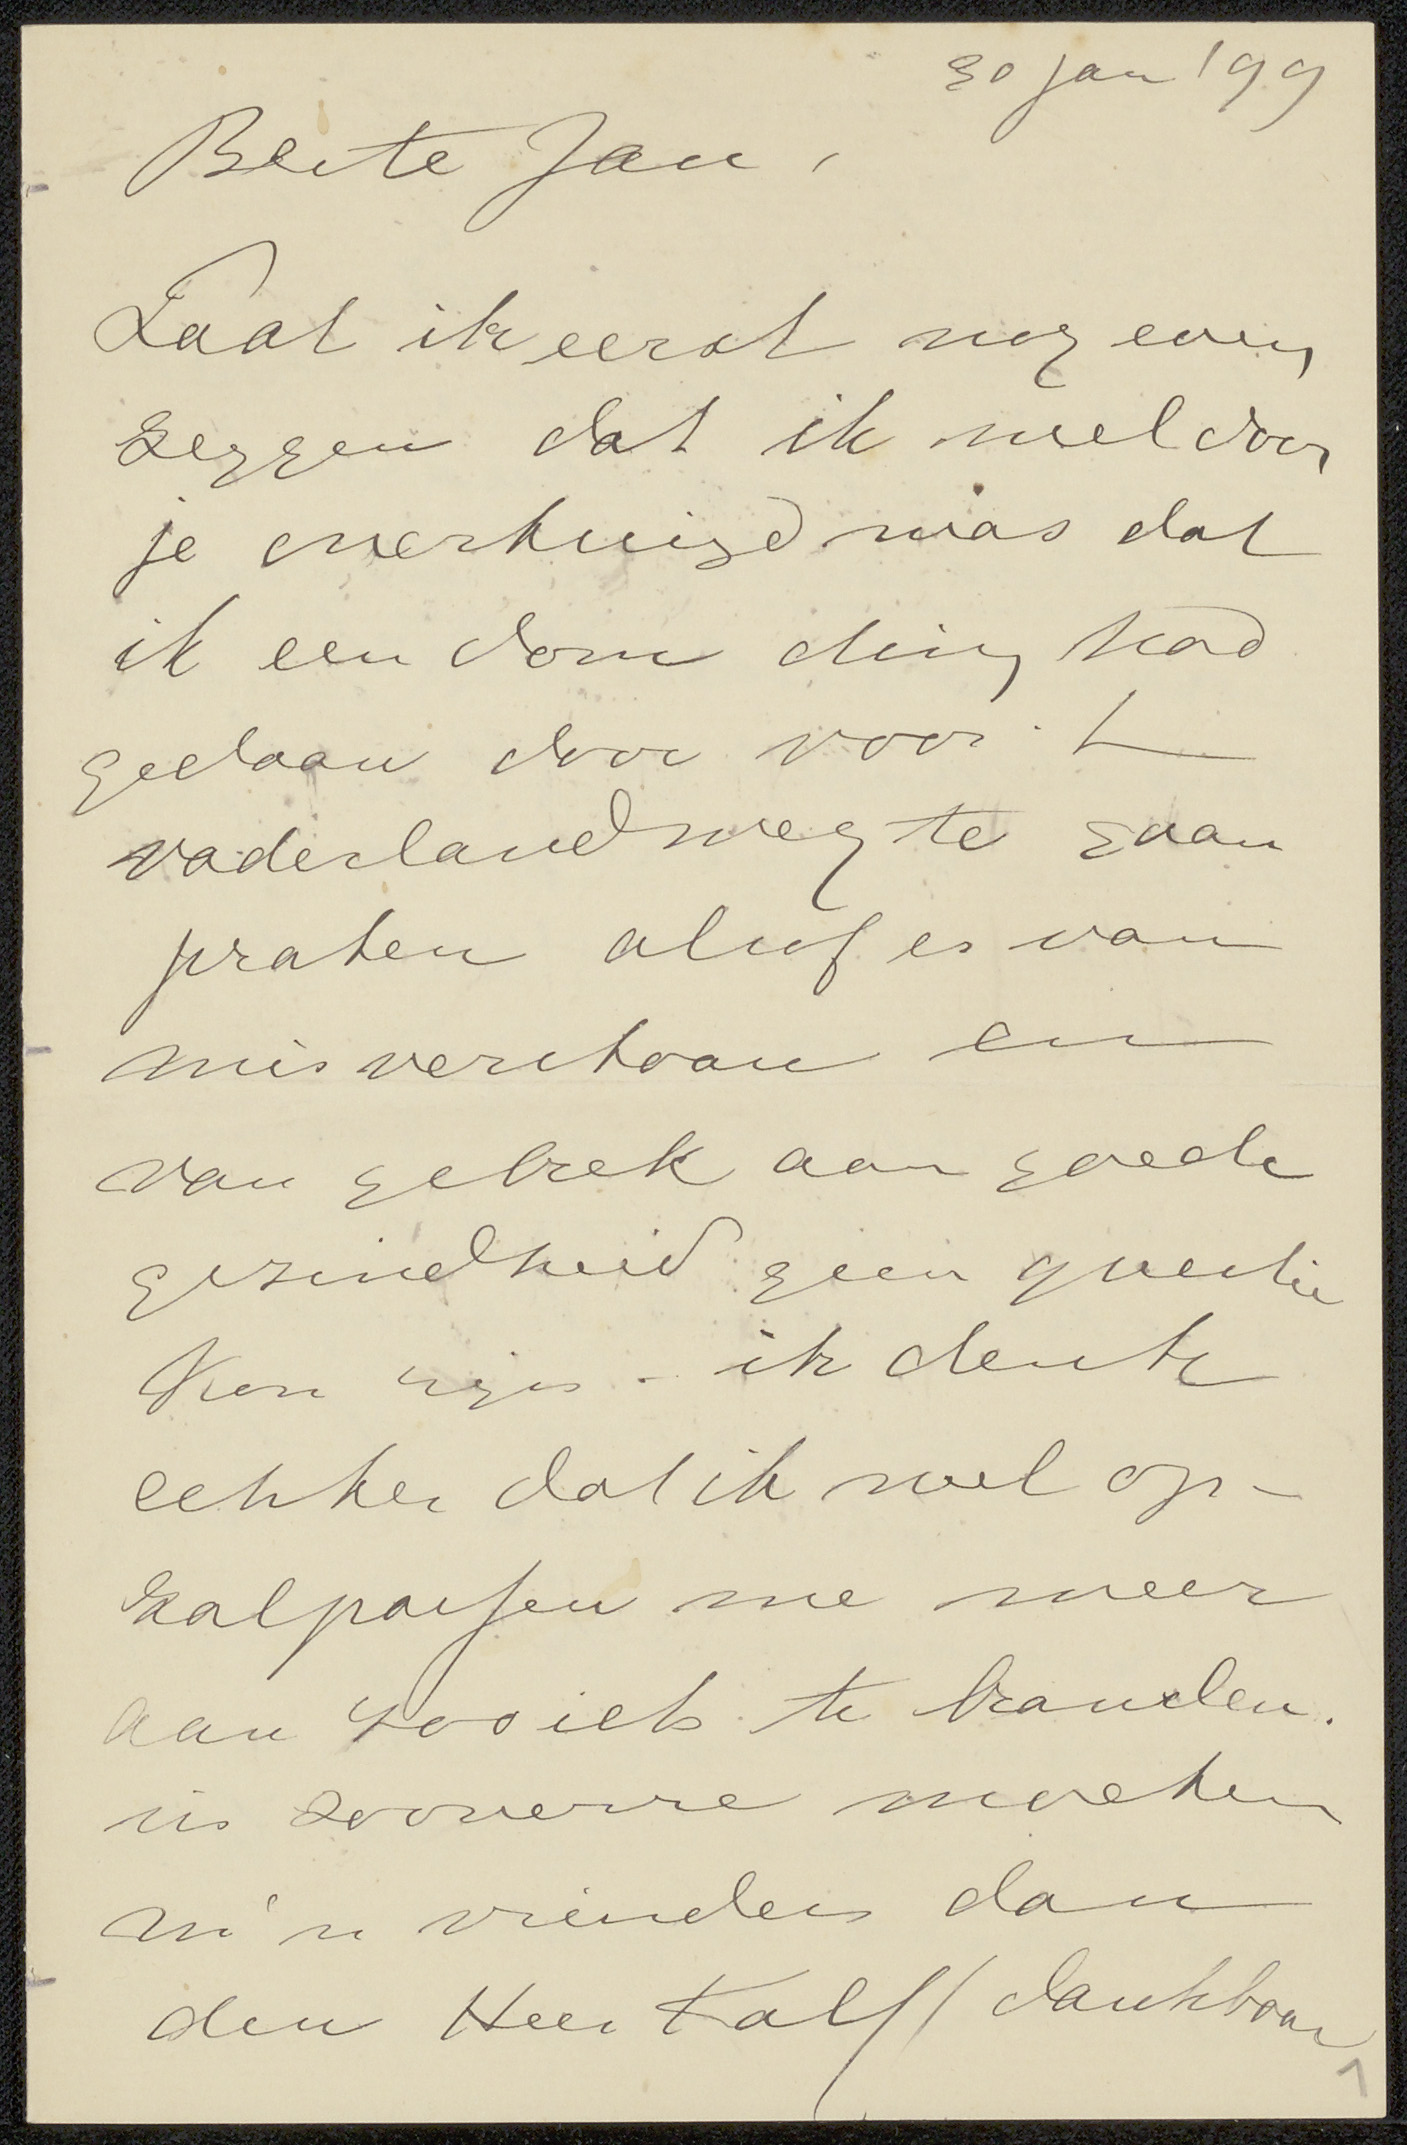 30 jan '99
Beste Jan,
Laat ik eerst nog even
zeggen dat ik wel door
je overtuigd was dat
ik een dom ding had
gedaan door voor 't
vaderland weg te gaan
praten alsof er van
misverstaan en
van gebrek aan goede
gezindheid geen questie
kon zijn - ik denk
echter dat ik wel op-
zal passen me weer
aan zooiets te branden.
in zooverre moeten
m'n vrienden dan
den Heer Kalff dankbaar
1